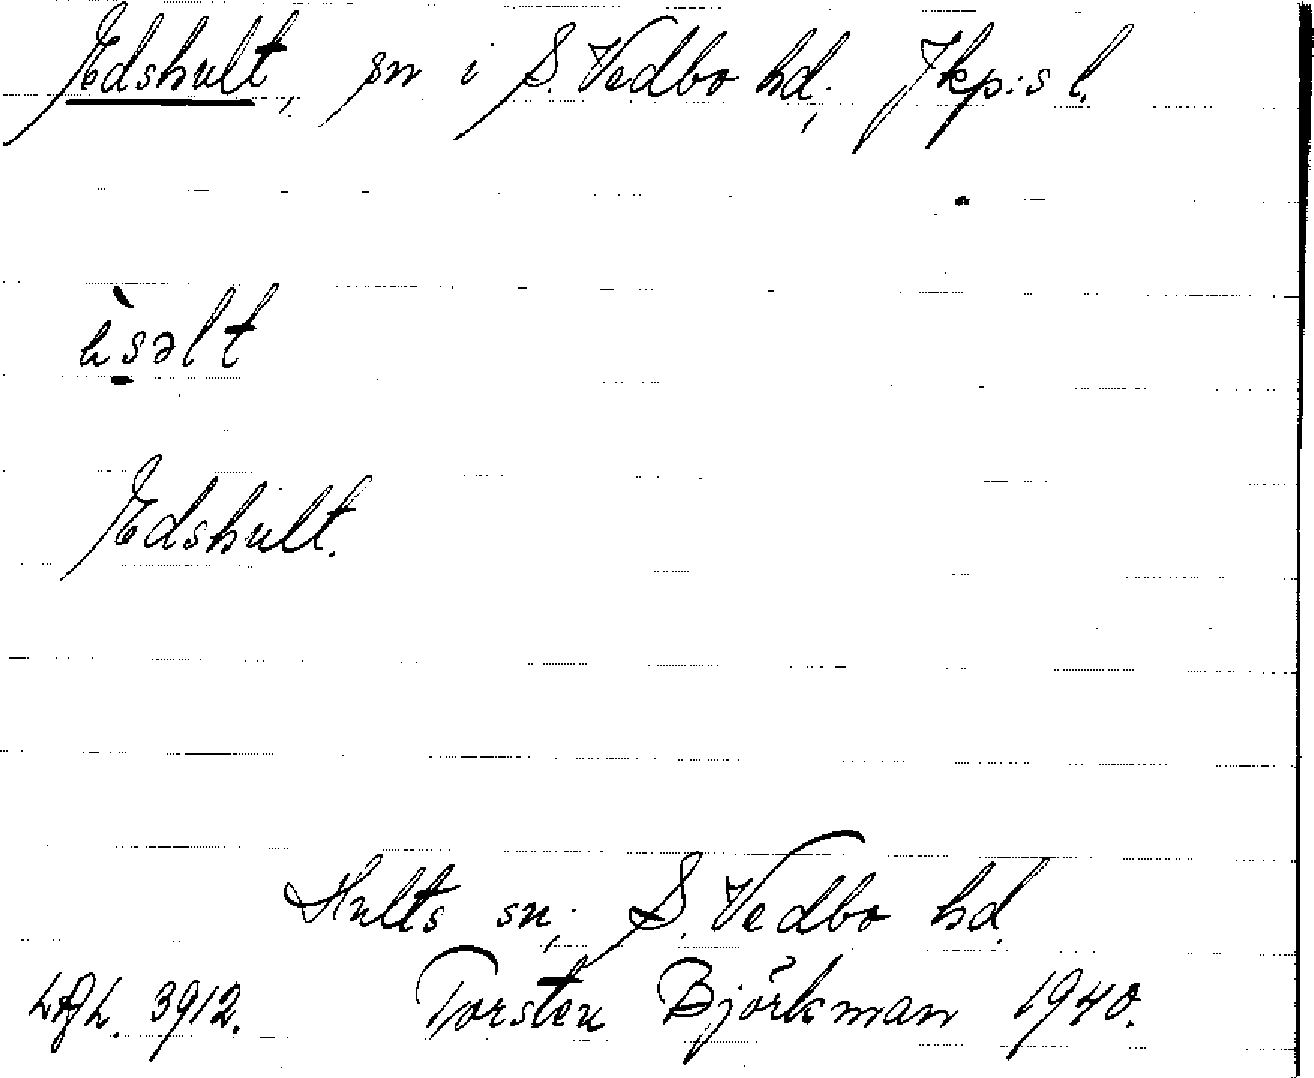 Edshult, sn i S. Vedbo hd; Jkp:s l.
Edshult.
Hults sn; S. Vedbo hd.
3912. Torsten Björkman 1940.